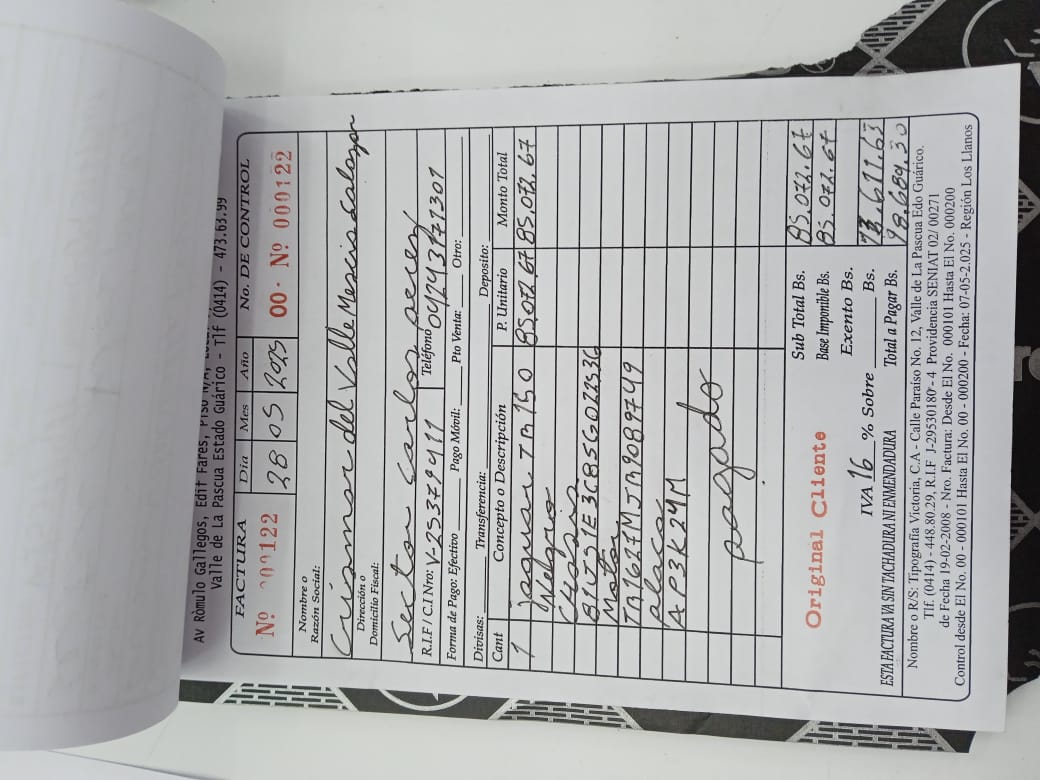 Av Ròmulo Gallegos, Edif Fares, Piso N/A,
Valle de La Pascua Estado Guárico - Tlf (0414) - 473.63.99
FACTURA Día Mes Año No. DE CONTROL
Nº 000122 28 05 2025 00 - Nº 000122
Nombre o
Razón Social:
Crismar del Valle Mescis Salazar
Dirección o
Domicilio Fiscal:
Sector Carlos perez
R.I.F / C.I Nro: V-25379411 Teléfono 04243171301
Forma de Pago: Efectivo Pago Móvil: Pto Venta: Otro:
Divisas: Transferencia: Deposito:
Cant Concepto o Descripción P. Unitario Monto Total
1 jaguar TR150 85.072,67 85.072,67
Negro
Chasis
Motor
TR162FMJTR9089749
placa
AP3K24M
pagado
Original Cliente
Sub Total Bs. 85.072,67
Base Imponible Bs. 85.072,67
Exento Bs.
IVA 16 % Sobre Bs. 13.611,63
ESTA FACTURA VA SIN TACHADURA NI ENMENDADURA Total a Pagar Bs. 98.689,30
Nombre o R/S: Tipografía Victoria, C.A - Calle Paraiso No. 12, Valle de La Pascua Edo Guárico.
Tlf. (0414) - 448.80.29, R.I.F J-29530180 - 4 Providencia SENIAT 02/ 00271
de Fecha 19-02-2008 - Nro. Factura: Desde El No. 000101 Hasta El No. 000200
Control desde El No. 00 - 000101 Hasta El No. 00 - 000200 - Fecha: 07-05-2.025 - Región Los Llanos